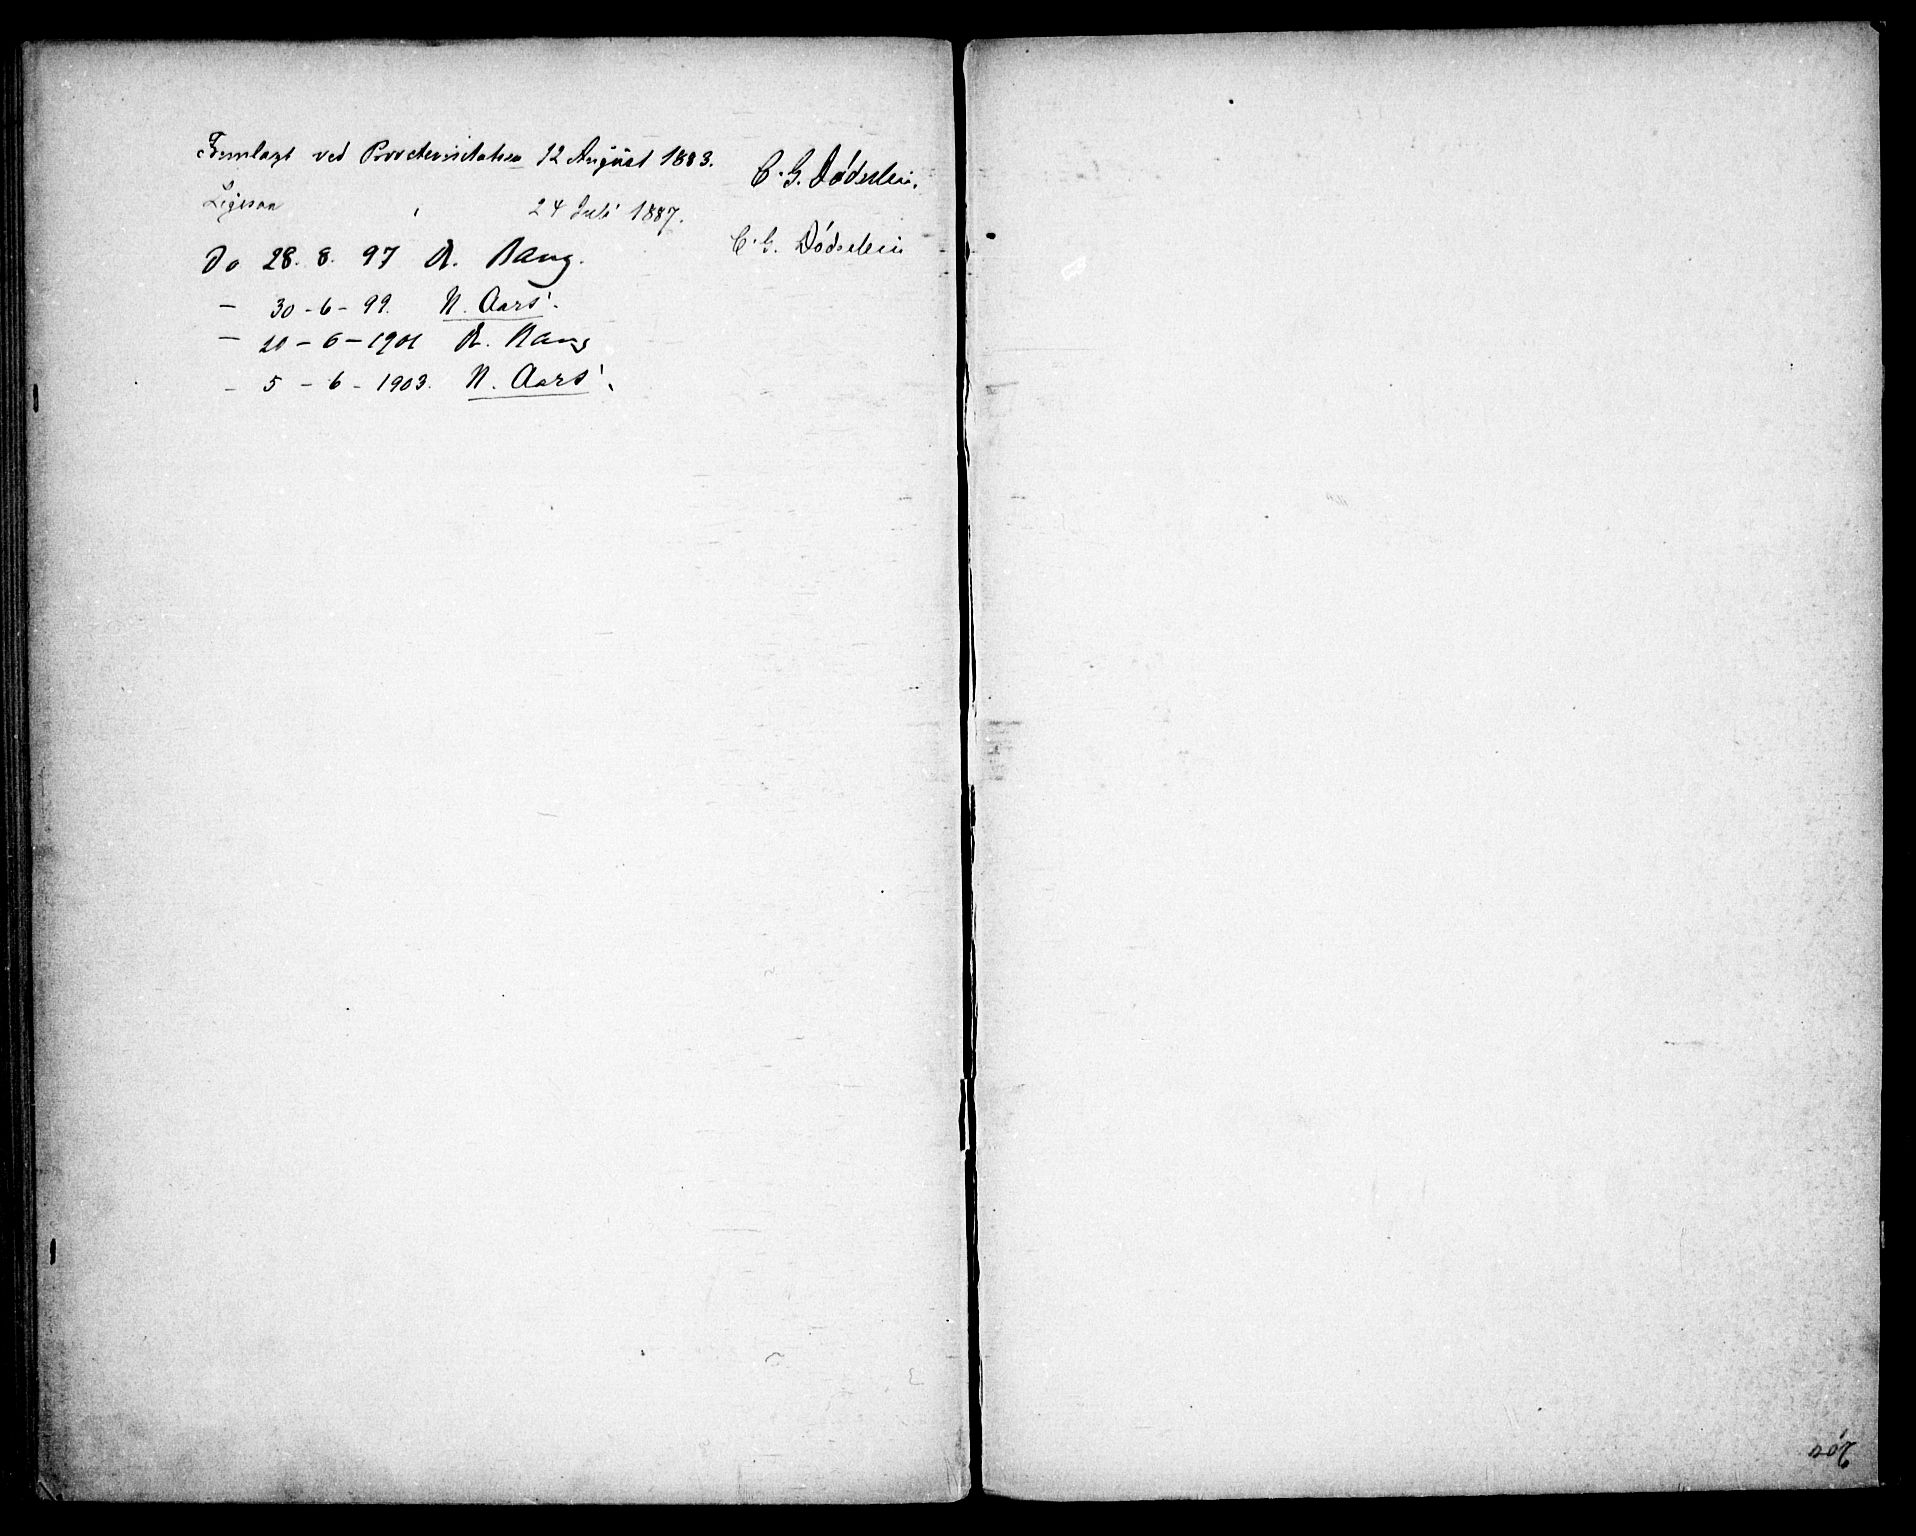 Fremlagt ved Provstevisitatsen 12 August 1883. C. G. Døderlein.
Ligesaa " 24 Juli 1887. C. G. Døderlein
Do 28. 8. 97 A. Bang.
— 30-6-99. N. Aars.
— 20-6-1901 A. Bang
— 5-6-1903. N. Aars.